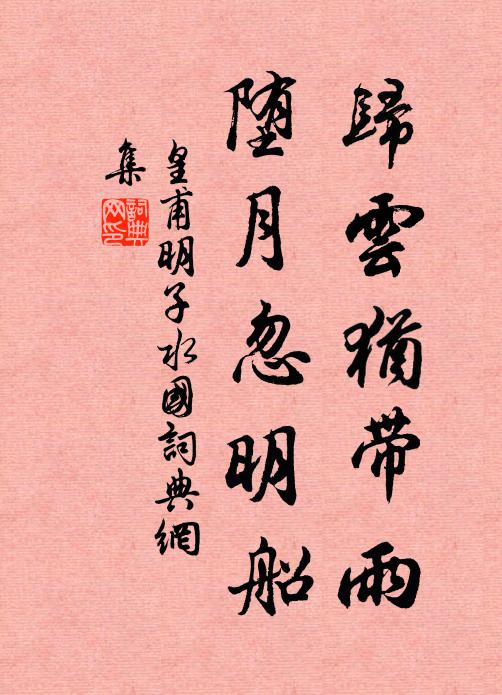 歸雲猶帶雨
堕月忽明船
皇甫明子水國詞典網
集
詞典
网印